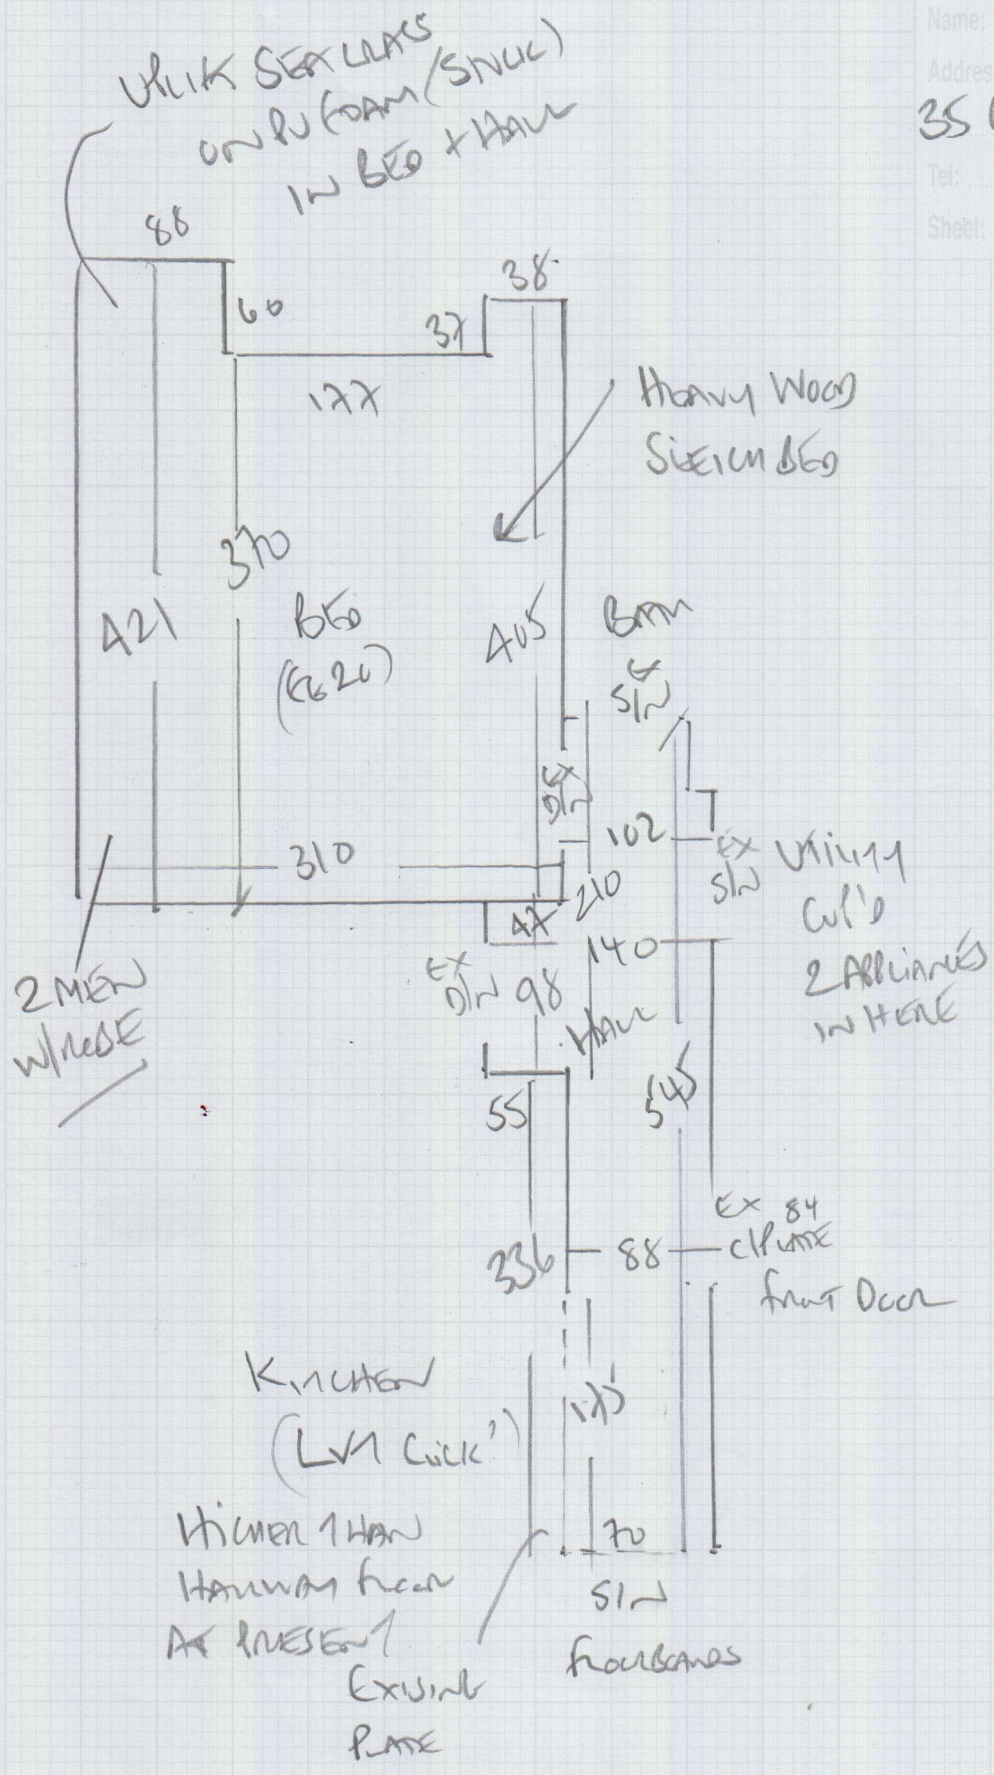 Name:
Addres
35
Tel:
Sheet:
UPLIK SEAGRASS
ON PU FOAM (STUCK)
IN BED + HALL
88
60
38
37
177
HEAVY WOOD
SLEIGH BED
370
421
BED
405
BATH
EX
S/N
EX
D/N
310
102
EX
S/N
UTILITY
CUP'D
2 APPLIANCES
IN HERE
210
47
140
EX
D/N
98
HALL
2 MEN
W/ROBE
545
55
EX 84
C/PLATE
FRONT DOOR
336
88
KITCHEN
(LVT CLICK')
175
HIGHER THAN
HALLWAY FLOOR
AT PRESENT
70
S/N
FLOORBOARDS
EXISING
PLATE